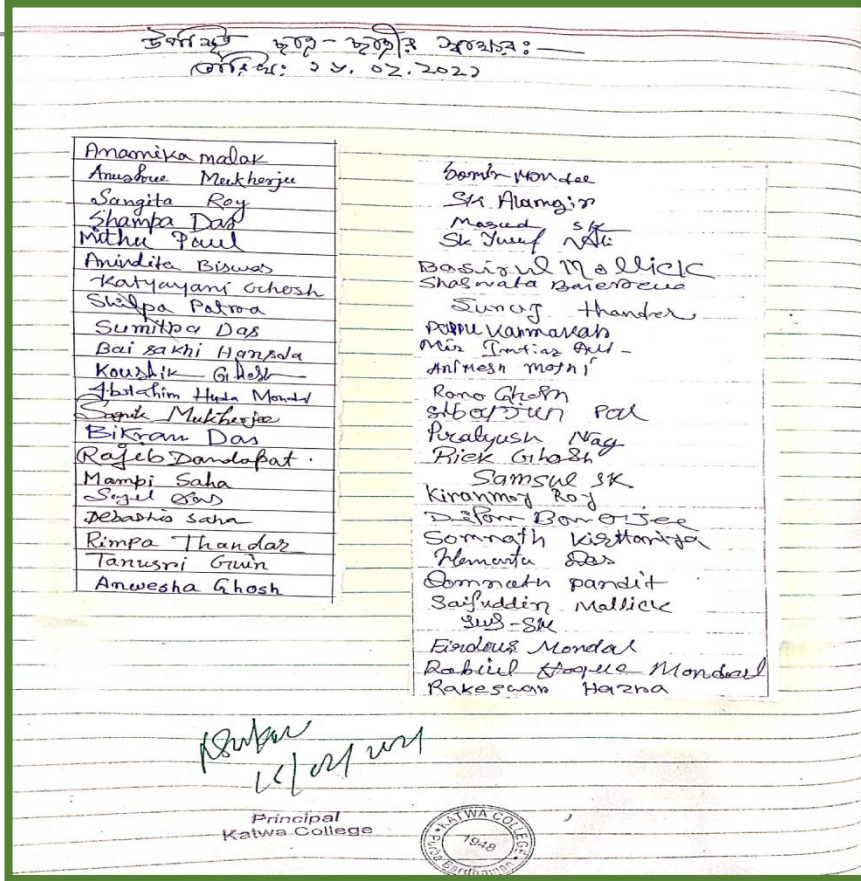 উপস্থিত ছাত্র-ছাত্রীর স্বাক্ষর:—
তারিখ: ১৮.০২.২০২১
Anamika malak
Anushree Mukherjee
Sangita Roy
Shampa Das
Mithu Paul
Anindita Biswas
Katyayani Ghosh
Shilpa Patroa
Sumitra Das
Baisakhi Hansda
Koushik Ghosh
Ibrahim Huda Mondal
Sagnik Mukherjee
Bikram Das
Rajeb Dandapat.
Mampi Saha
Das
Debashis Saha
Rimpa Thandar
Tanusri Guin
Anwesha Ghosh
Sk Alamgir
Masud SK
Sk Yusuf Ali
Basirul Mollick
Thander
Pappu Karmakar
Mir Imtiaz
Animesh
Rono Ghosh
Pal
Piratyush Nag
Rick Ghosh
Samsul SK
Kiranmoy Roy
Banerjee
Somnath Kirttaniya
Hemanta Das
Somnath pandit
Saifuddin Mallick
SK
Firdous Mondal
Robiul Hoque Mondal
Hazra
Principal
Katwa College
KATWA COLLEGE
1948
Purba Bardhaman